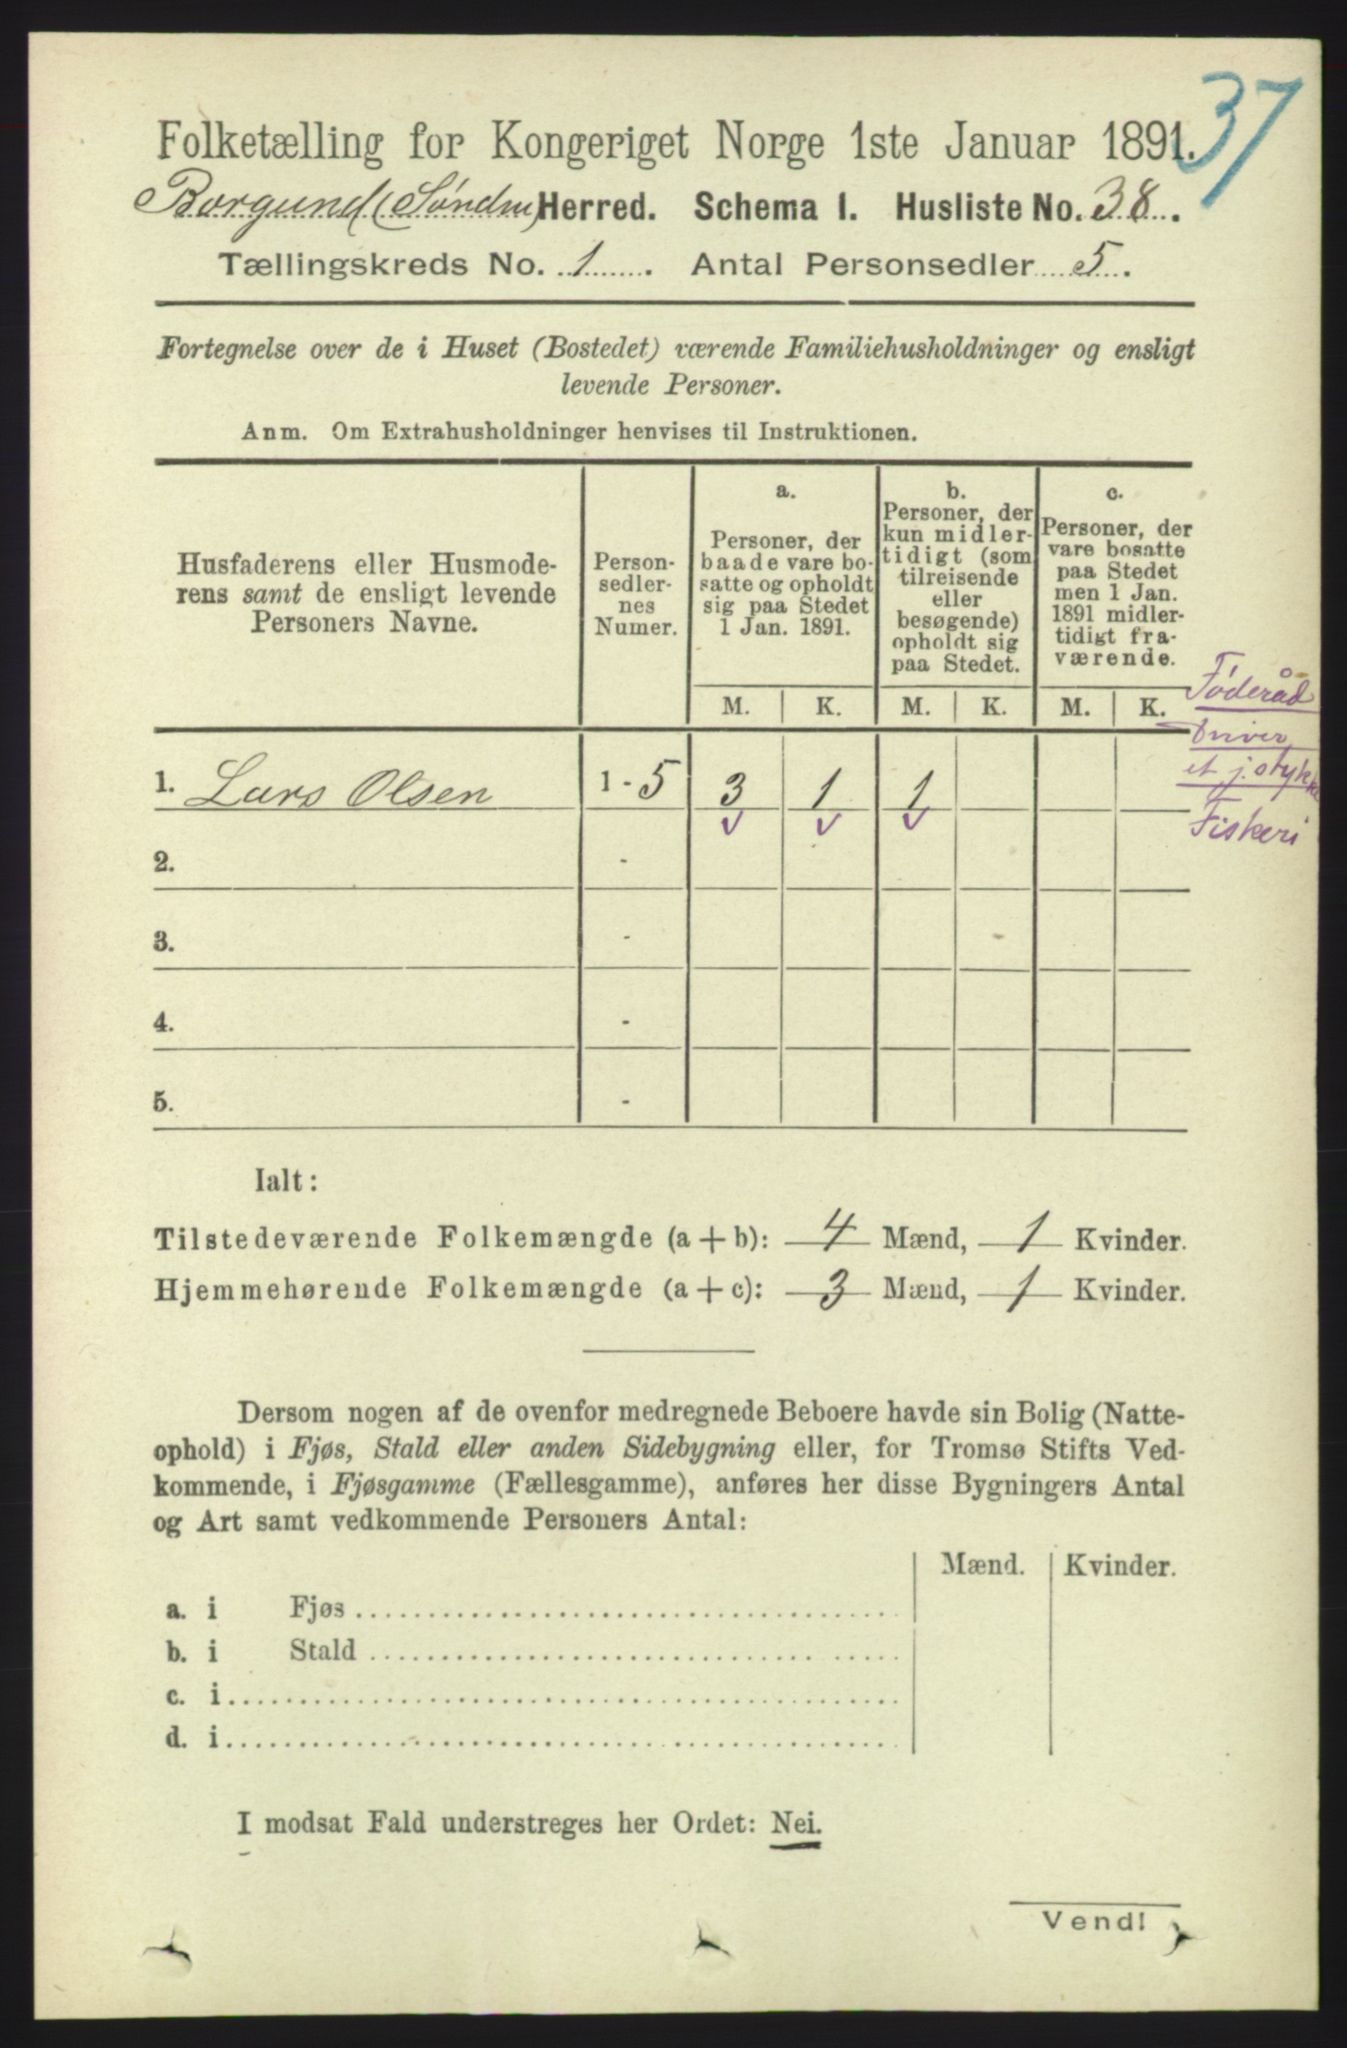 37
Folketælling for Kongeriget Norge 1ste Januar 1891.
Borgund (Söndm) Herred. Schema I. Husliste No. 38.
Tællingskreds No. 1. Antal Personsedler 5.
Fortegnelse over de i Huset (Bostedet) værende Familiehusholdninger og ensligt
levende Personer.
Anm. Om Extrahusholdninger henvises til Instruktionen.
Husfaderens eller Husmode-
rens samt de ensligt levende
Personers Navne.
Person-
sedler-
nes
Numer.
a.
Personer, der
baade vare bo-
satte og opholdt
sig paa Stedet
1 Jan. 1891.
b.
Personer, der
kun midler-
tidigt (som
tilreisende
eller
besøgende)
opholdt sig
paa Stedet.
c.
Personer, der
vare bosatte
paa Stedet
men 1 Jan.
1891 midler-
tidigt fra-
værende.
M. K. M. K. M. K.
Föderåd
Driver
et j.stykke
Fiskeri
1. Lars Olsen 1 - 5 3 1 1
2. -
3. -
4. -
5. -
Ialt:
Tilstedeværende Folkemængde (a + b): 4 Mænd, 1 Kvinder.
Hjemmehørende Folkemængde (a + c): 3 Mænd, 1 Kvinder.
Dersom nogen af de ovenfor medregnede Beboere havde sin Bolig (Natte-
ophold) i Fjøs, Stald eller anden Sidebygning eller, for Tromsø Stifts Ved-
kommende, i Fjøsgamme (Fællesgamme), anføres her disse Bygningers Antal
og Art samt vedkommende Personers Antal:
Mænd. Kvinder.
a. i Fjøs
b. i Stald
c. i
d. i
I modsat Fald understreges her Ordet: Nei.
Vend!